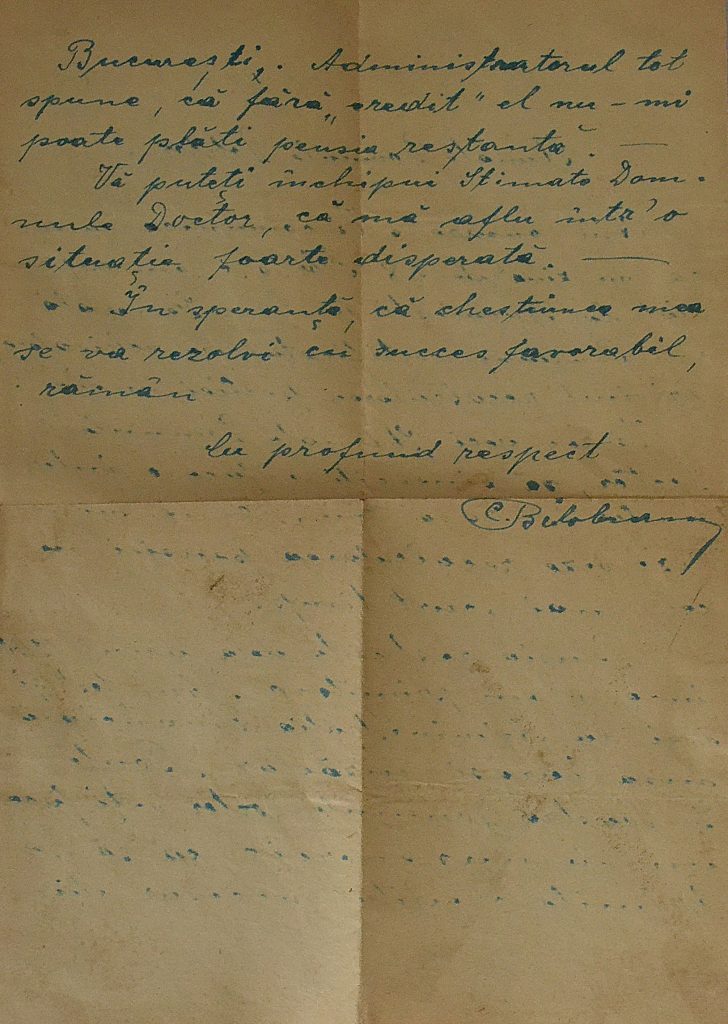 București. Administratorul tot
spune, că fără „credit" el nu-mi
poate plăti pensia restantă. —
Vă puteți închipui Stimate Dom-
nule Doctor, că mă aflu într'o
situație foarte disperată. —
În speranță, că chestiunea mea
se va rezolvi cu succes favorabil,
rămân
Cu profund respect
C.